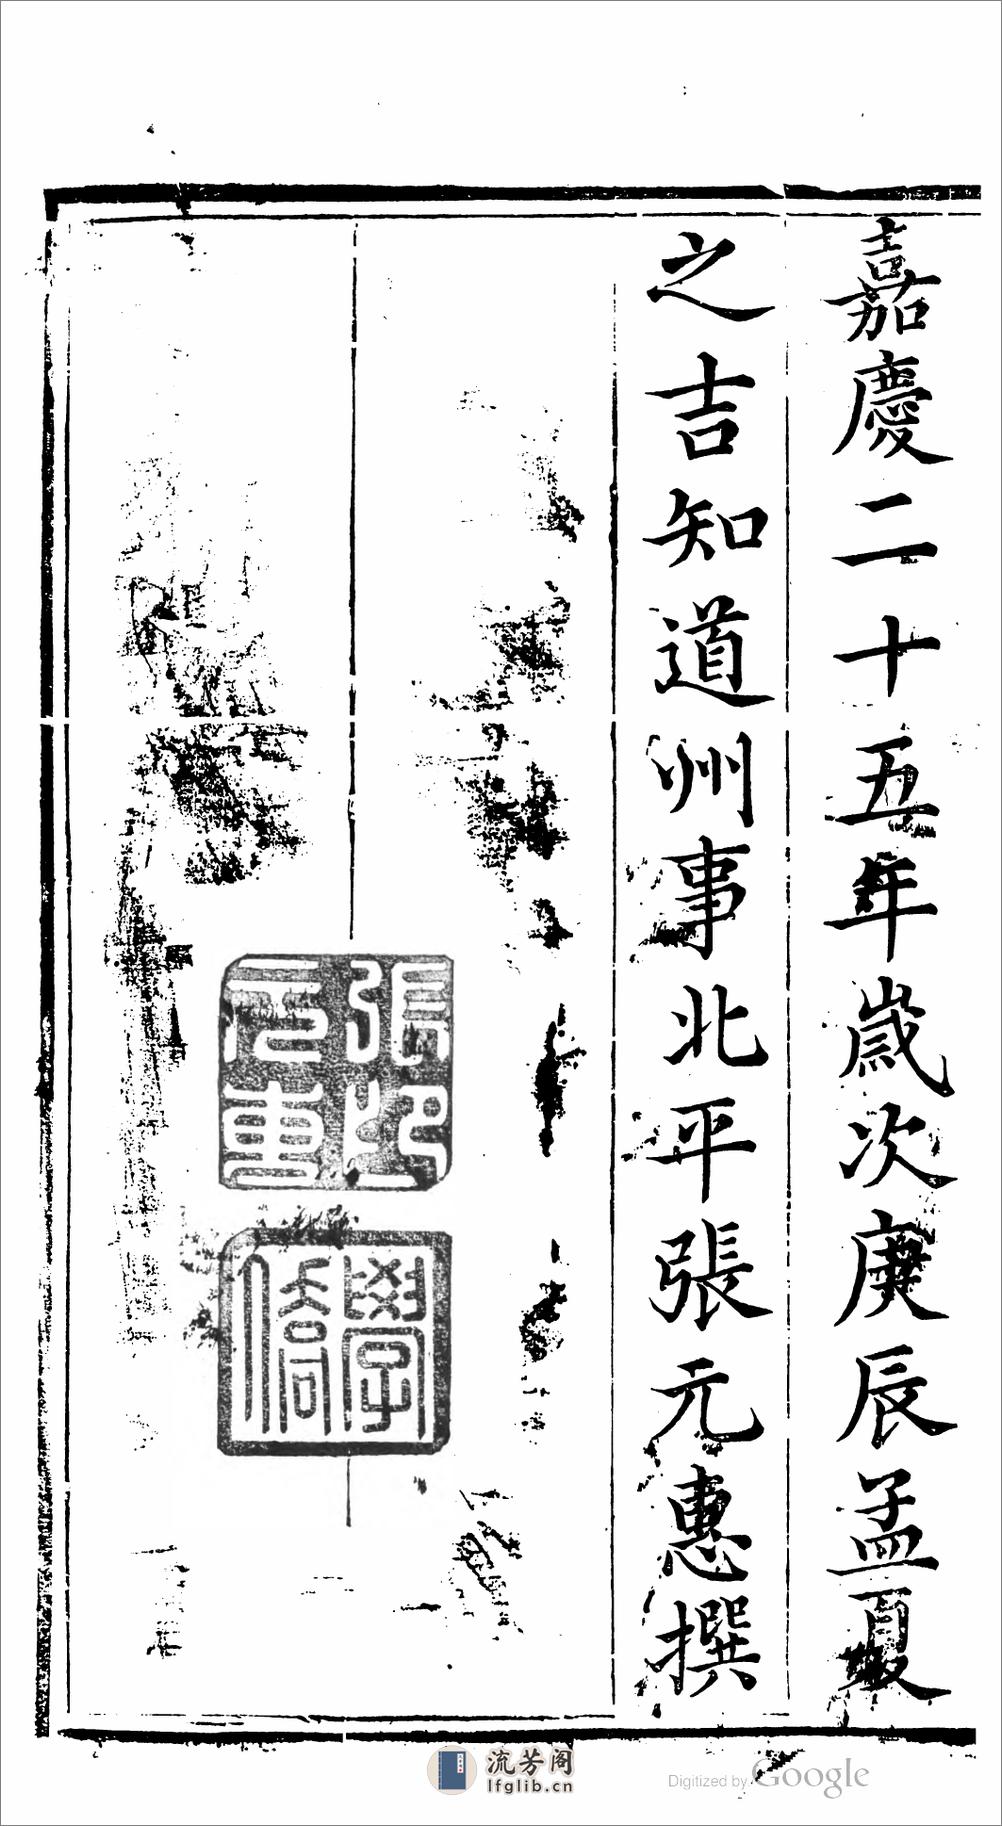 嘉慶二十五年歲次庚辰孟夏
之吉知道州事北平張元惠撰
張印
元惠
學
流芳阁
lfglib.cn
Digitized by Google